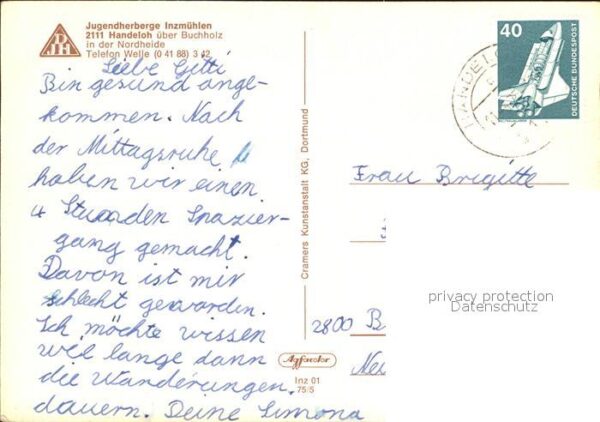 Jugendherberge Inzmühlen
2111 Handeloh über Buchholz
in der Nordheide
Telefon Welle (0 41 88) 3 42
DJH
Liebe Gitti
Bin gesund ange-
kommen. Nach
der Mittagsruhe
haben wir einen
4 Stunden Spazier-
gang gemacht.
Davon ist mir
schlecht geworden.
Ich möchte wissen
wie lange dann
die Wanderungen
dauern. Deine Simona
Cramers Kunstanstalt KG, Dortmund
Agfacolor
Inz 01
75/5
40
DEUTSCHE BUNDESPOST
HANDELO
Frau Brigitte
2800 B
Neu
privacy protection
Datenschutz